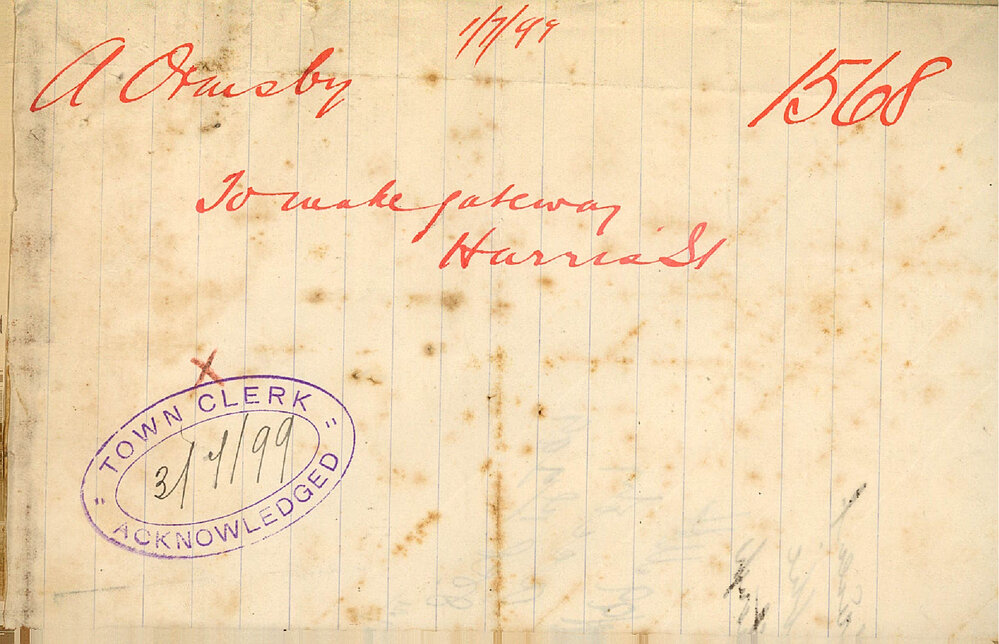 1/7/99
A Ormsby
1568
To make gateway
Harris St
X
TOWN CLERK
3/7/99
ACKNOWLEDGED